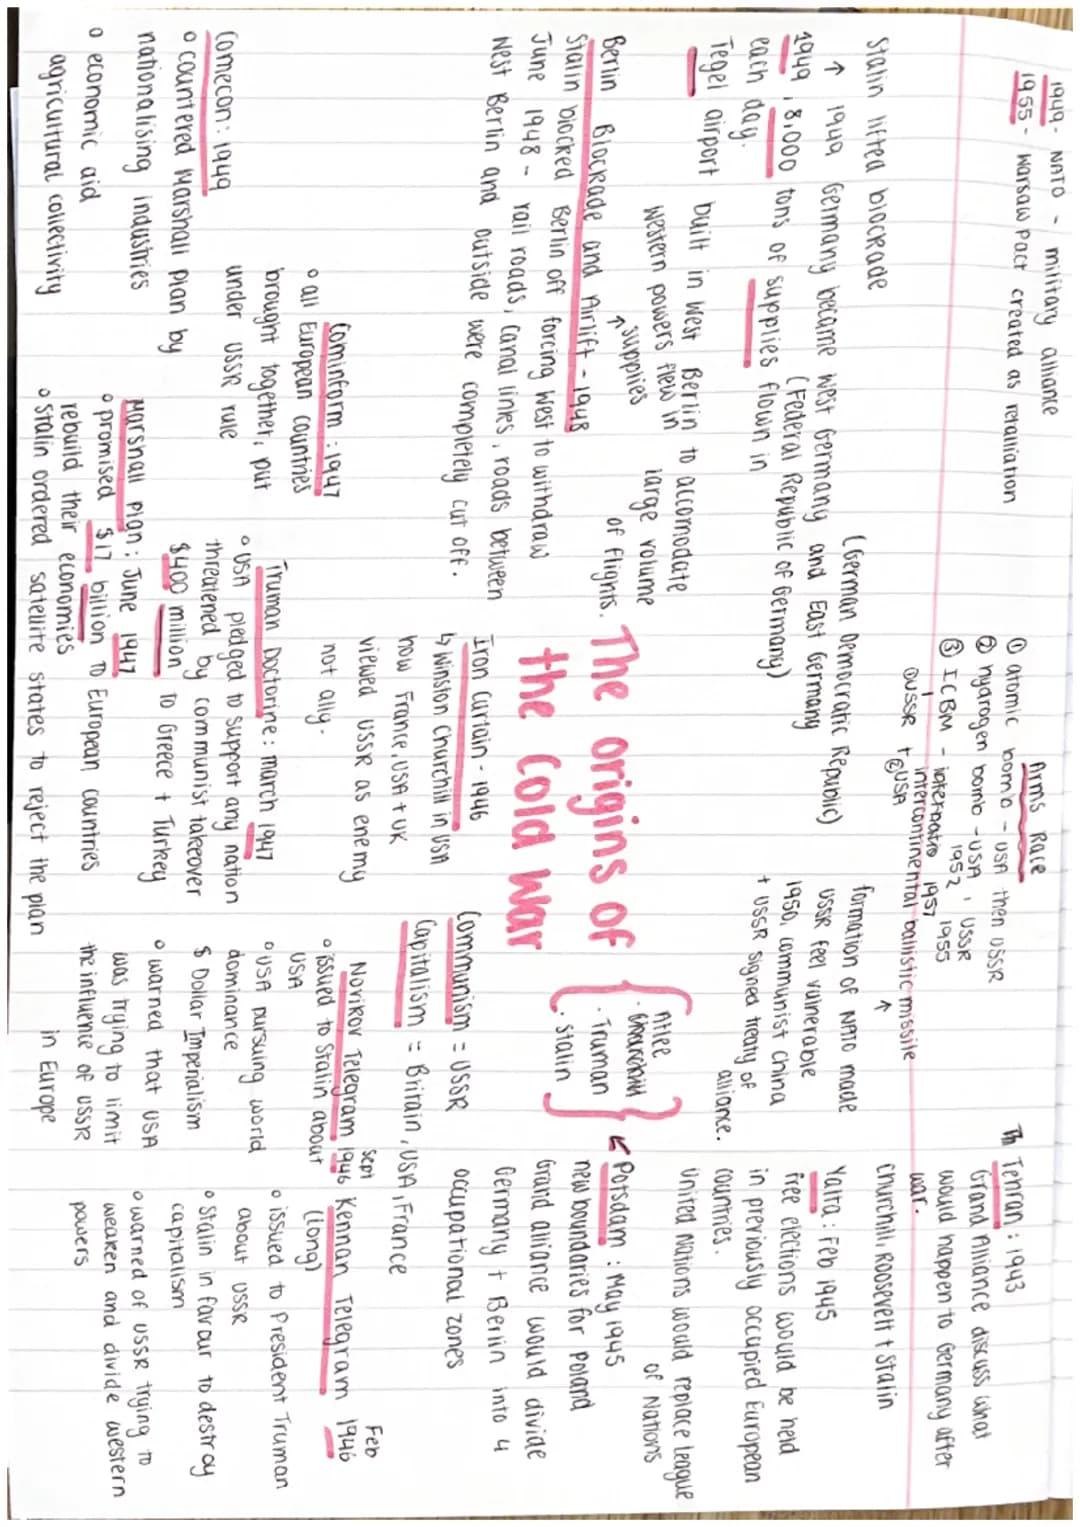 The origins of
the Cold War
Atlee
Churchill
· Truman
· Stalin
Th Tehran : 1943
Grand Alliance discuss what
would happen to Germany after
war.
Churchill, Roosevelt + Stalin
Yalta : Feb 1945
free elections would be held
in previously occupied European
countries.
United Nations would replace league
of Nations
Potsdam : May 1945
new boundaries for Poland
Grand alliance would divide
Germany + Berlin into 4
occupational zones
Communism = USSR
Capitalism = Britain, USA, France
Kennan Telegram Feb 1946
(Long)
o issued to President Truman
about USSR
o Stalin in favour to destroy
capitalism
o warned of USSR trying to
weaken and divide western
powers
Novikov Telegram Sept 1946
o issued to Stalin about
USA
o USA pursuing world
dominance
$ Dollar Imperialism
o warned that USA
was trying to limit
the influence of USSR
in Europe
Iron Curtain - 1946
↳ Winston Churchill in USA
how France, USA + UK
viewed USSR as enemy
not ally.
Truman Doctorine : march 1947
o USA pledged to support any nation
threatened by communist takeover
$400 million to Greece + Turkey
Marshall Plan : June 1947
o promised $17 billion to European countries
rebuild their economies
o Stalin ordered satellite states to reject the plan
Cominform : 1947
o all European countries
brought together, put
under USSR rule
Comecon : 1949
o countered Marshall plan by
nationalising industries
o economic aid
agricultural collectivity
Berlin Blockade and Airlift - 1948
Stalin blocked Berlin off forcing West to withdraw
June 1948 - rail roads, canal lines, roads between
West Berlin and outside were completely cut off.
western powers flew in
↑ supplies
Tegel airport built in West Berlin to accomodate
large volume
of flights.
1949, 8,000 tons of supplies flown in
each day.
↑ 1949 Germany became West Germany and East Germany
(Federal Republic of Germany)
(German Democratic Republic)
Stalin lifted blockade
1949 - NATO - military alliance
1955 - Warsaw pact created as retalliation
Arms Race
① atomic bomb - USA then USSR
② hydrogen bomb - USA, USSR
1952, 1955
③ ICBM - 1957
intercontinental ballistic missile
①USSR + ②USA
↑
formation of NATO made
USSR feel vulnerable
1950, communist China
+ USSR signed treaty of
alliance.